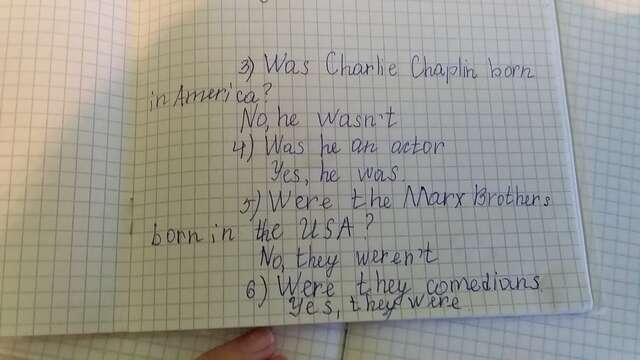 3) Was Charlie Chaplin born
in America?
No, he wasn't
4) Was he an actor
Yes, he was.
5) Were the Marx Brothers
born in the USA?
No, they weren't
6) Were they comedians
Yes, they were